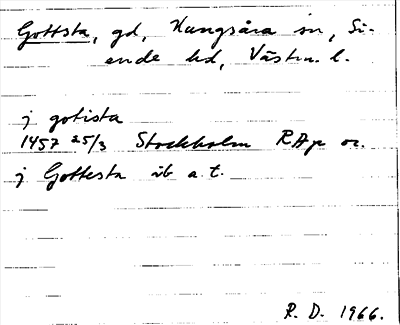 Gottsta, gd, Kungsåra sn, Si-
ende hd, Västm. l.
j gotista
1457 25/3 Stockholm RAp or.
j Gottesta ib a.t.
R. D. 1966.